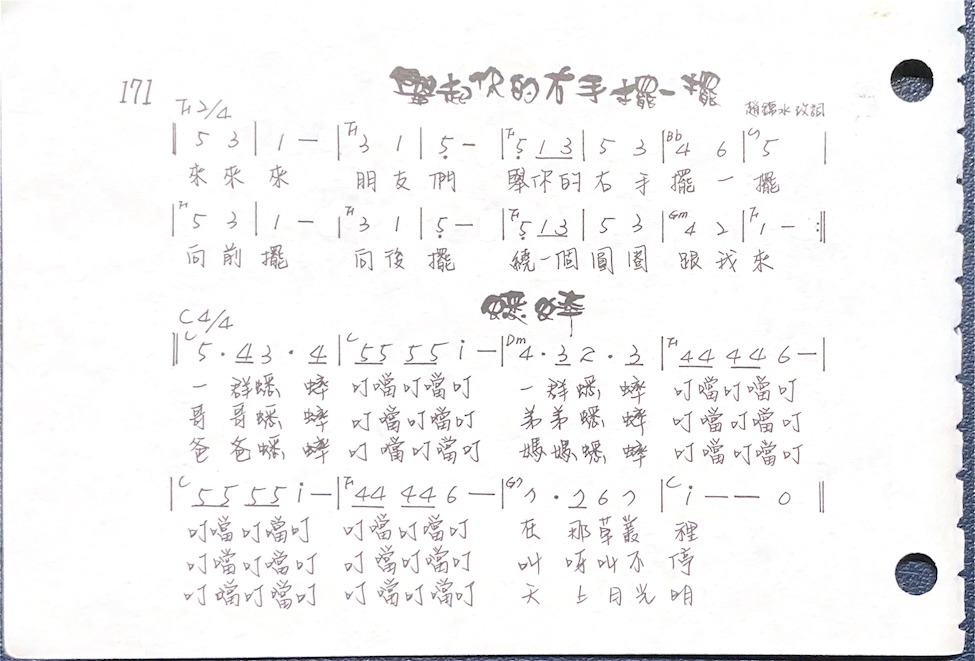 171 舉起你的右手擺一擺
F 2/4 趙錦水改詞
‖ 5 3 | 1 － |F 3 1 | 5̣ － |F 5̣ 1 3 | 5 3 |Bb 4 6 |C7 5 |
來來來 朋友們 舉你的右手擺一擺
|F 5 3 | 1 － |F 3 1 | 5̣ － |F 5̣ 1 3 | 5 3 |Gm 4 2 |F 1 － :‖
向前擺 向後擺 繞一個圓圈 跟我來
蟋蟀
C 4/4
‖C 5 · 4 3 · 4 |C 5 5 5 5 i － |Dm 4 · 3 2 · 3 |F 4 4 4 4 6 － |
一群蟋蟀 叮噹叮噹叮 一群蟋蟀 叮噹叮噹叮
哥哥蟋蟀 叮噹叮噹叮 弟弟蟋蟀 叮噹叮噹叮
爸爸蟋蟀 叮噹叮噹叮 媽媽蟋蟀 叮噹叮噹叮
|C 5 5 5 5 i － |F 4 4 4 4 6 － |G7 7 · 7 6 7 |C i － － 0 ‖
叮噹叮噹叮 叮噹叮噹叮 在那草叢裡
叮噹叮噹叮 叮噹叮噹叮 叫呀叫不停
叮噹叮噹叮 叮噹叮噹叮 天上月光明